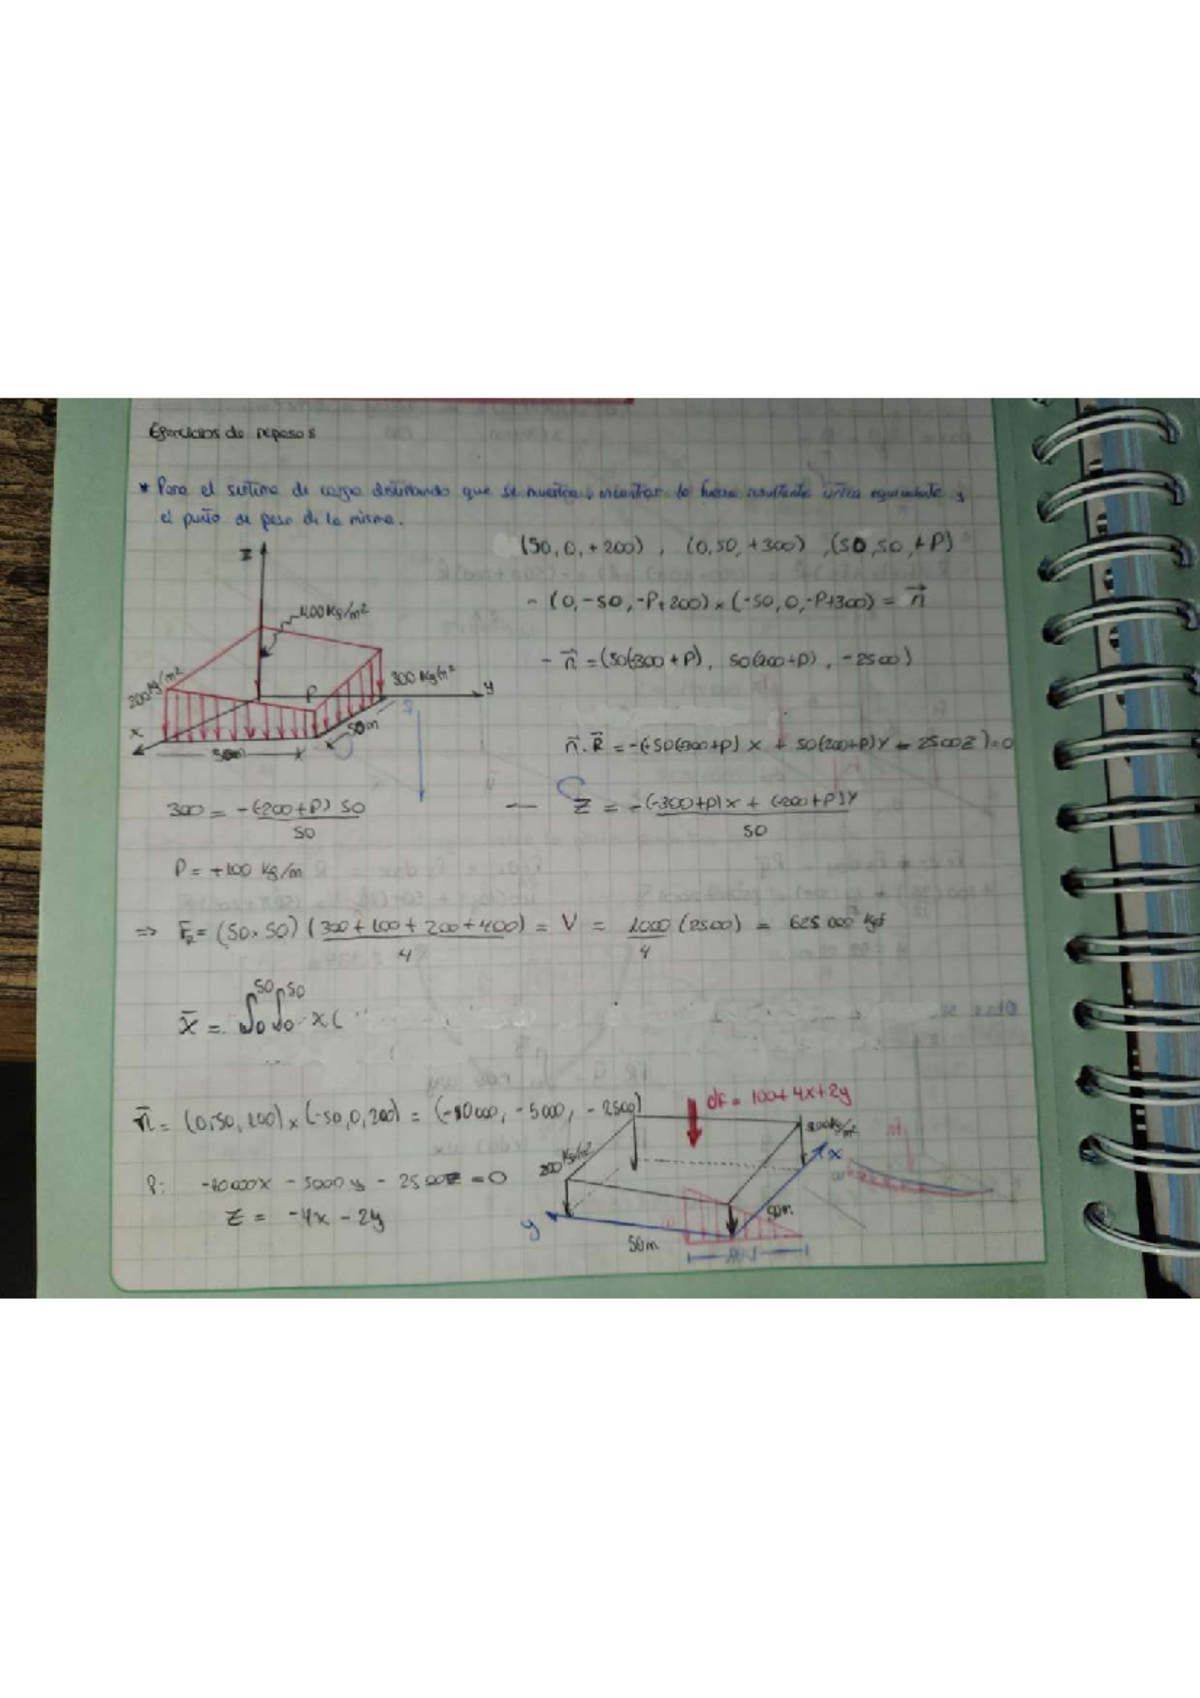 Ejercicios de repaso
* Para el sistema de carga distribuido que se muestra, encontrar la fuerza resultante única equivalente y
el punto de paso de la misma.
(50,0,+200), (0,50,+300), (50,50,+P)
- (0,-50,-P+200) × (-50,0,-P+300) = n
z
400 Kg/m²
200 Kg/m²
300 Kg/m²
P
y
x
50m
50m
- n = (50(-300+P), 50(-200+P), -2500)
n · R = -(-50(-300+p) x + 50(-200+p) y - 2500 z) = 0
300 = -(-200+P) 50
50
z = -(-300+p)x + (-200+p)y
50
P = +100 kg/m
=> F_R = (50×50) (300+100+200+400) = V = 1000 (2500) = 625 000 Kgf
4
4
x̄ = ∫₀⁵⁰ ∫₀⁵⁰ x (
n = (0,-50,100) × (-50,0,200) = (-10000, -5000, -2500)
df = 100 + 4x + 2y
P: -10000x - 5000y - 2500z = 0
z = -4x - 2y
200 Kg/m²
x
y
50m
50m